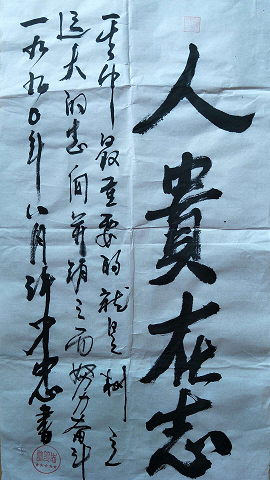 人貴在志
一生中最重要的就是树立
远大的志向并朝之而努力奋斗
一九九〇年八月许才忠書